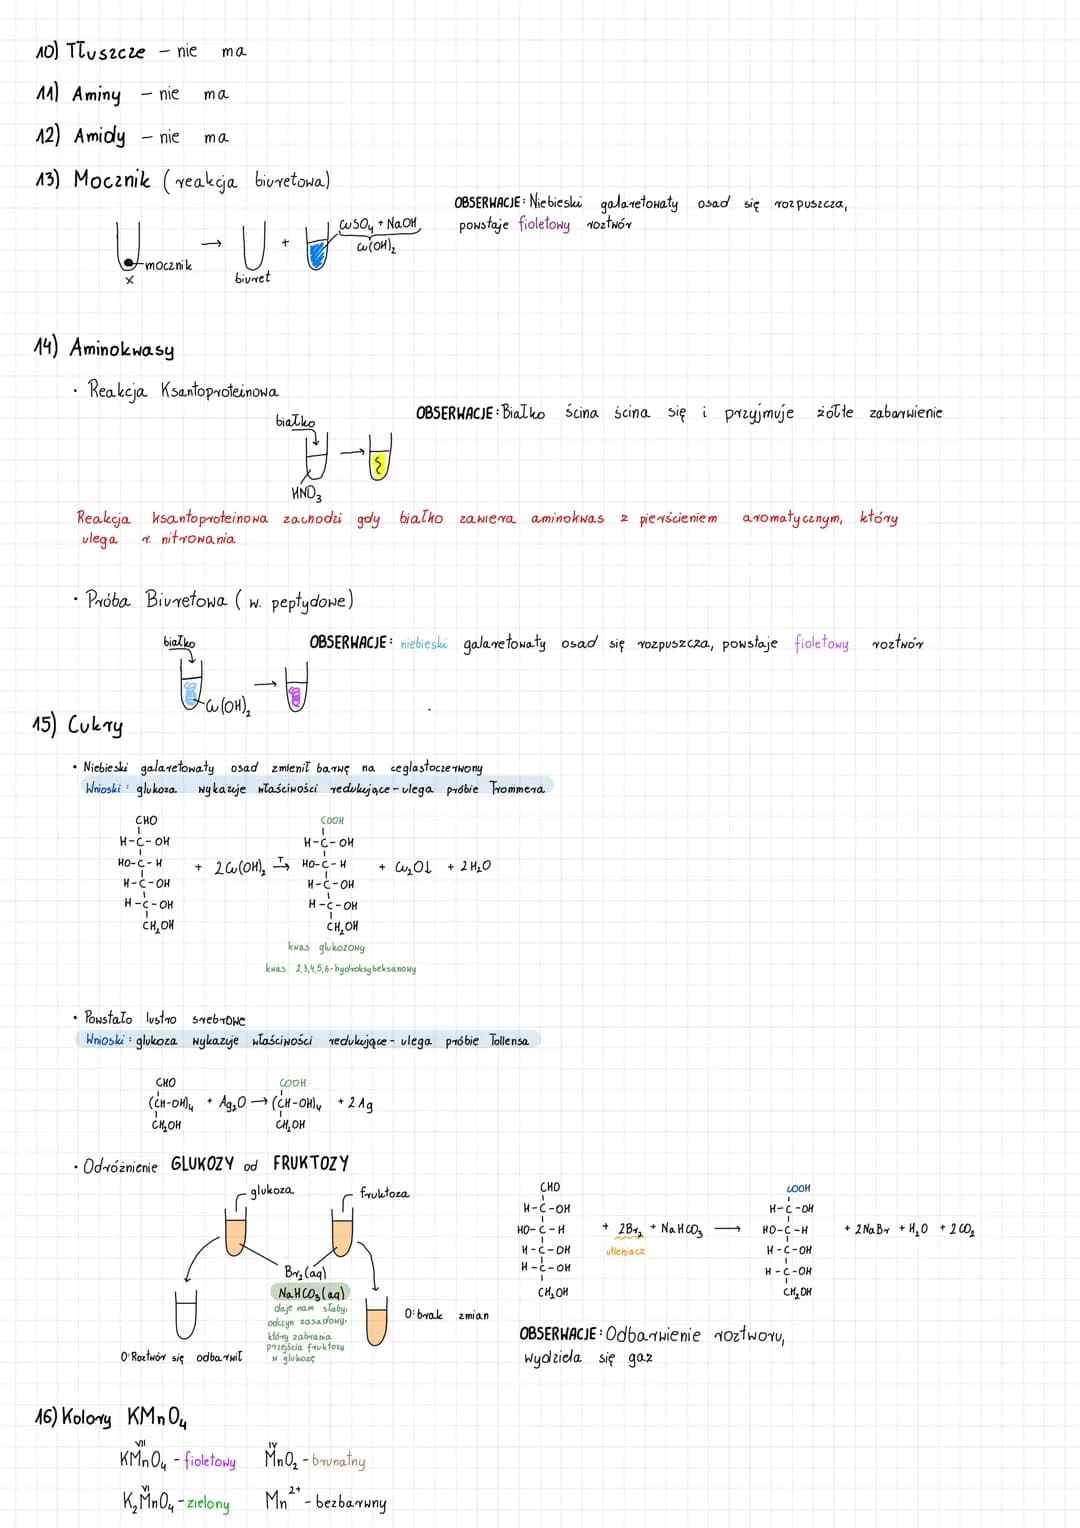 10) Tłuszcze - nie ma
11) Aminy - nie ma
12) Amidy - nie ma
13) Mocznik (reakcja biuretowa)
OBSERWACJE: Niebieski galaretowaty osad się rozpuszcza,
powstaje fioletowy roztwór
CuSO₄ + NaOH
Cu(OH)₂
→ +
mocznik
x
biuret
14) Aminokwasy
• Reakcja Ksantoproteinowa
OBSERWACJE: Białko ścina ścina się i przyjmuje żółte zabarwienie
białko
→
HNO₃
Reakcja ksantoproteinowa zachodzi gdy białko zawiera aminokwas z pierścieniem aromatycznym, który
ulega r. nitrowania
• Próba Biuretowa (w. peptydowe)
białko
OBSERWACJE: niebieski galaretowaty osad się rozpuszcza, powstaje fioletowy roztwór
→
Cu(OH)₂
15) Cukry
• Niebieski galaretowaty osad zmienił barwę na ceglastoczerwony
Wnioski: glukoza wykazuje właściwości redukujące - ulega próbie Trommera
CHO COOH
H-C-OH H-C-OH
HO-C-H + 2Cu(OH)₂ T→ HO-C-H + Cu₂O↓ + 2H₂O
H-C-OH H-C-OH
H-C-OH H-C-OH
CH₂OH CH₂OH
kwas glukozowy
kwas 2,3,4,5,6-hydroksyheksanowy
• Powstało lustro srebrowe
Wnioski: glukoza wykazuje właściwości redukujące - ulega próbie Tollensa
CHO COOH
(CH-OH)₄ + Ag₂O → (CH-OH)₄ + 2Ag
CH₂OH CH₂OH
• Odróżnienie GLUKOZY od FRUKTOZY
glukoza fruktoza
Br₂(aq)
NaHCO₃(aq)
daje nam słaby,
odczyn zasadowy,
który zabrania
przejścia fruktozy
w glukozę
O: Roztwór się odbarwił
O: brak zmian
CHO COOH
H-C-OH H-C-OH
HO-C-H + 2Br₂ + NaHCO₃ → HO-C-H + 2NaBr + H₂O + 2CO₂
H-C-OH utleniacz H-C-OH
H-C-OH H-C-OH
CH₂OH CH₂OH
OBSERWACJE: Odbarwienie roztworu,
wydziela się gaz
16) Kolory KMnO₄
VII IV
KMnO₄ - fioletowy MnO₂ - brunatny
VI
K₂MnO₄ - zielony Mn²⁺ - bezbarwny